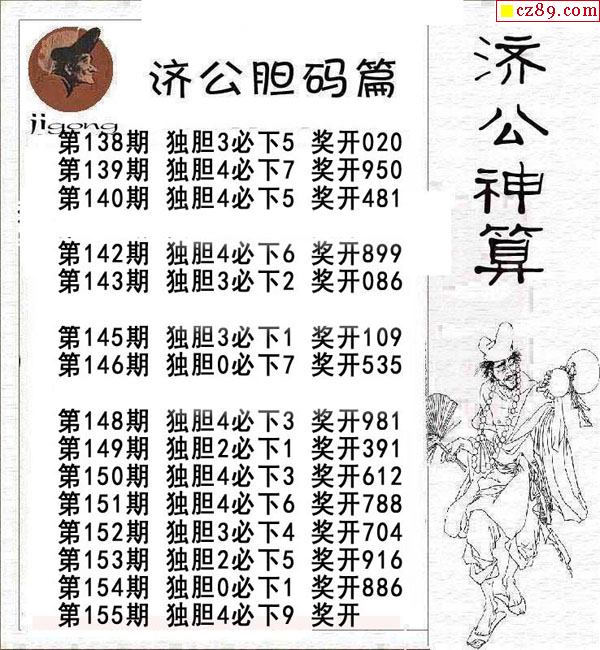 cz89.com
济公胆码篇
jigong
第138期 独胆3必下5 奖开020
第139期 独胆4必下7 奖开950
第140期 独胆4必下5 奖开481
第142期 独胆4必下6 奖开899
第143期 独胆3必下2 奖开086
第145期 独胆3必下1 奖开109
第146期 独胆0必下7 奖开535
第148期 独胆4必下3 奖开981
第149期 独胆2必下1 奖开391
第150期 独胆4必下3 奖开612
第151期 独胆4必下6 奖开788
第152期 独胆3必下4 奖开704
第153期 独胆2必下5 奖开916
第154期 独胆0必下1 奖开886
第155期 独胆4必下9 奖开
济公神算